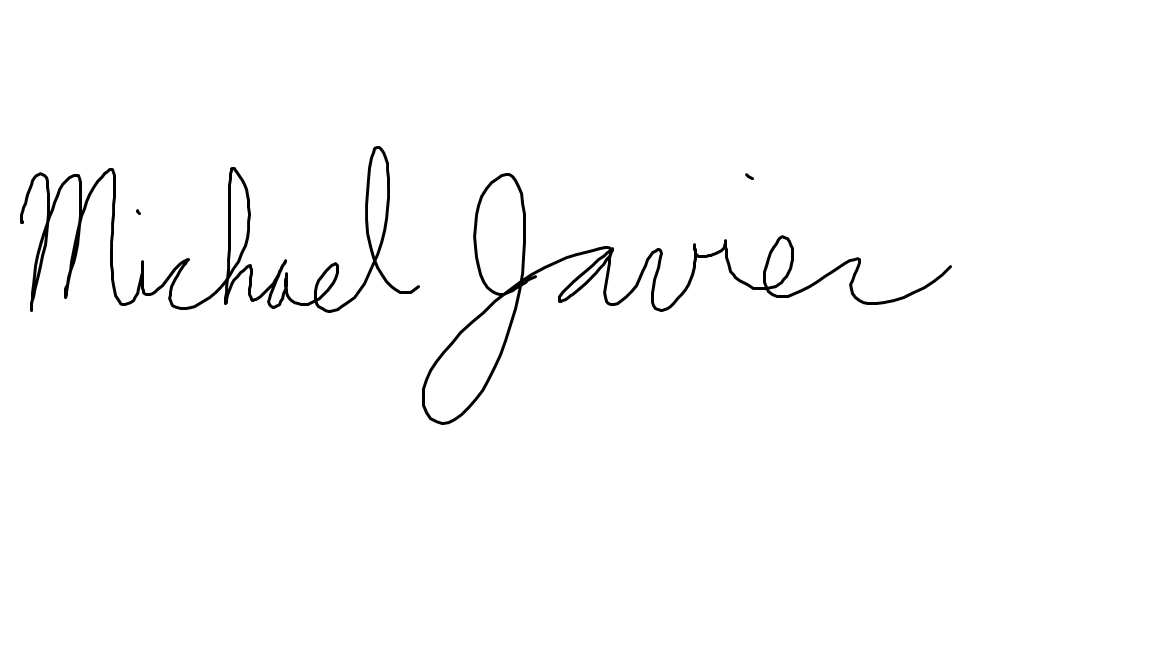 Michael Javier